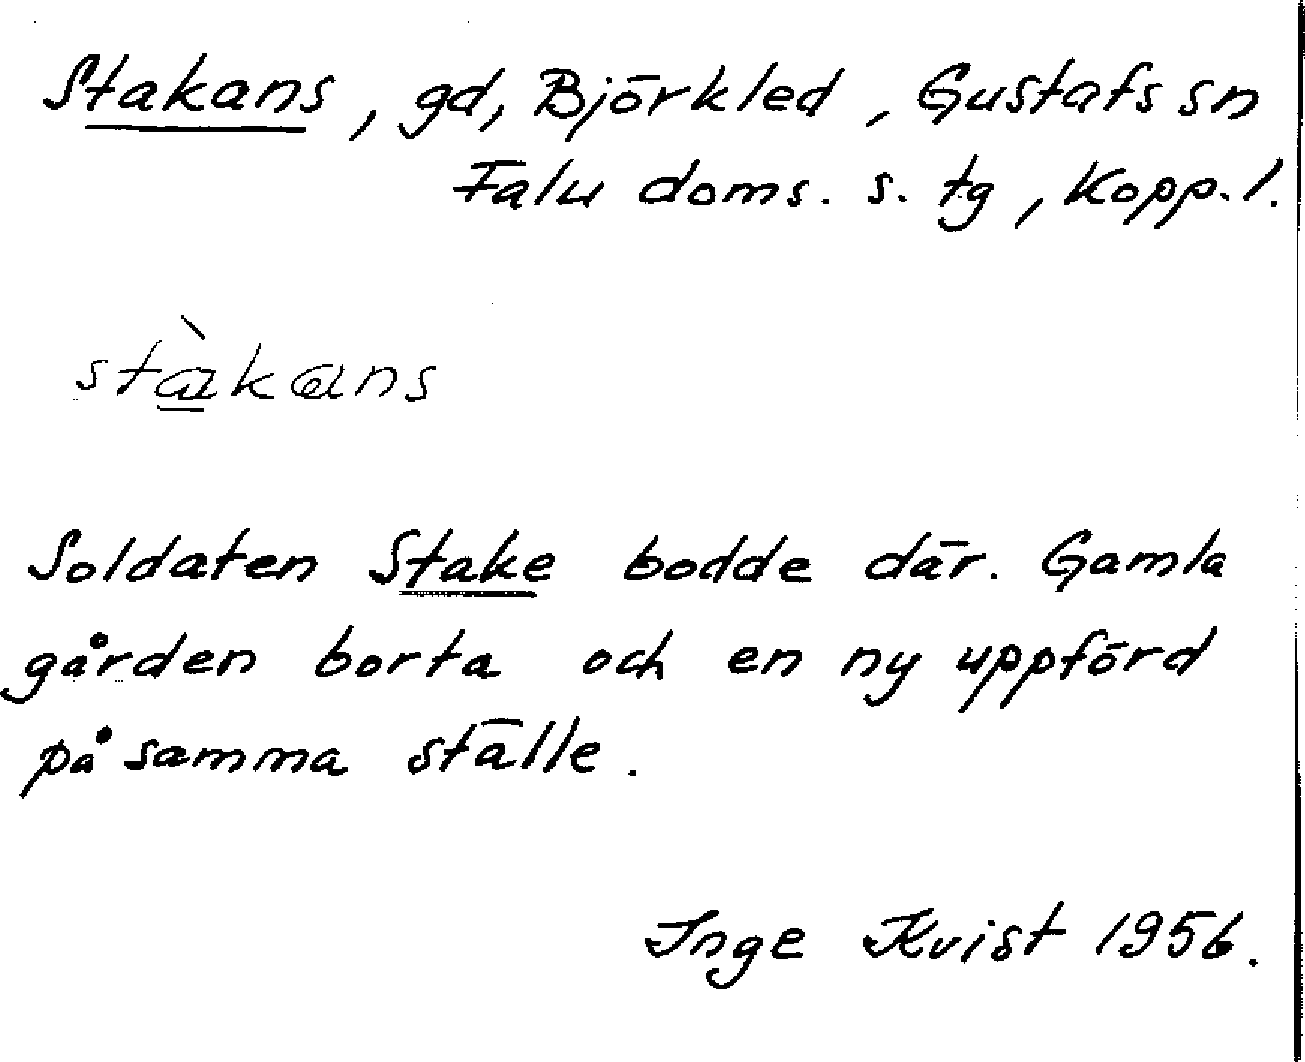 Stakans, gd, Björkled, Gustafs sn
Falu doms. s. tg, Kopp. l.
stàkans
Soldaten Stake bodde där. Gamla
gården borta och en ny uppförd
på samma ställe.
Inge Kvist 1956.